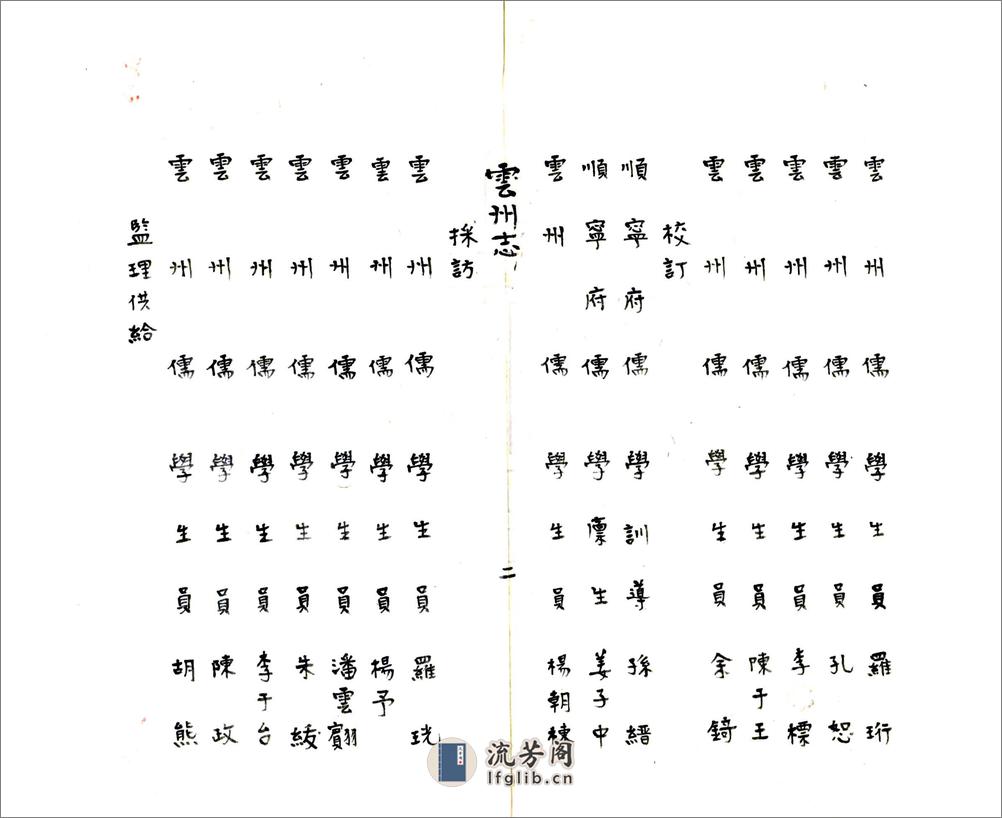 雲州儒學生員羅珩
雲州儒學生員孔恕
雲州儒學生員李標
雲州儒學生員陳于王
雲州儒學生員余錡
校訂
順寧府儒學訓導孫縉
順寧府儒學廩生姜子中
雲州儒學生員楊朝棟
雲州志
二
採訪
雲州儒學生員羅珖
雲州儒學生員楊予
雲州儒學生員潘雲翮
雲州儒學生員朱綾
雲州儒學生員李于台
雲州儒學生員陳政
雲州儒學生員胡熊
監理供給
流芳阁
lfglib.cn